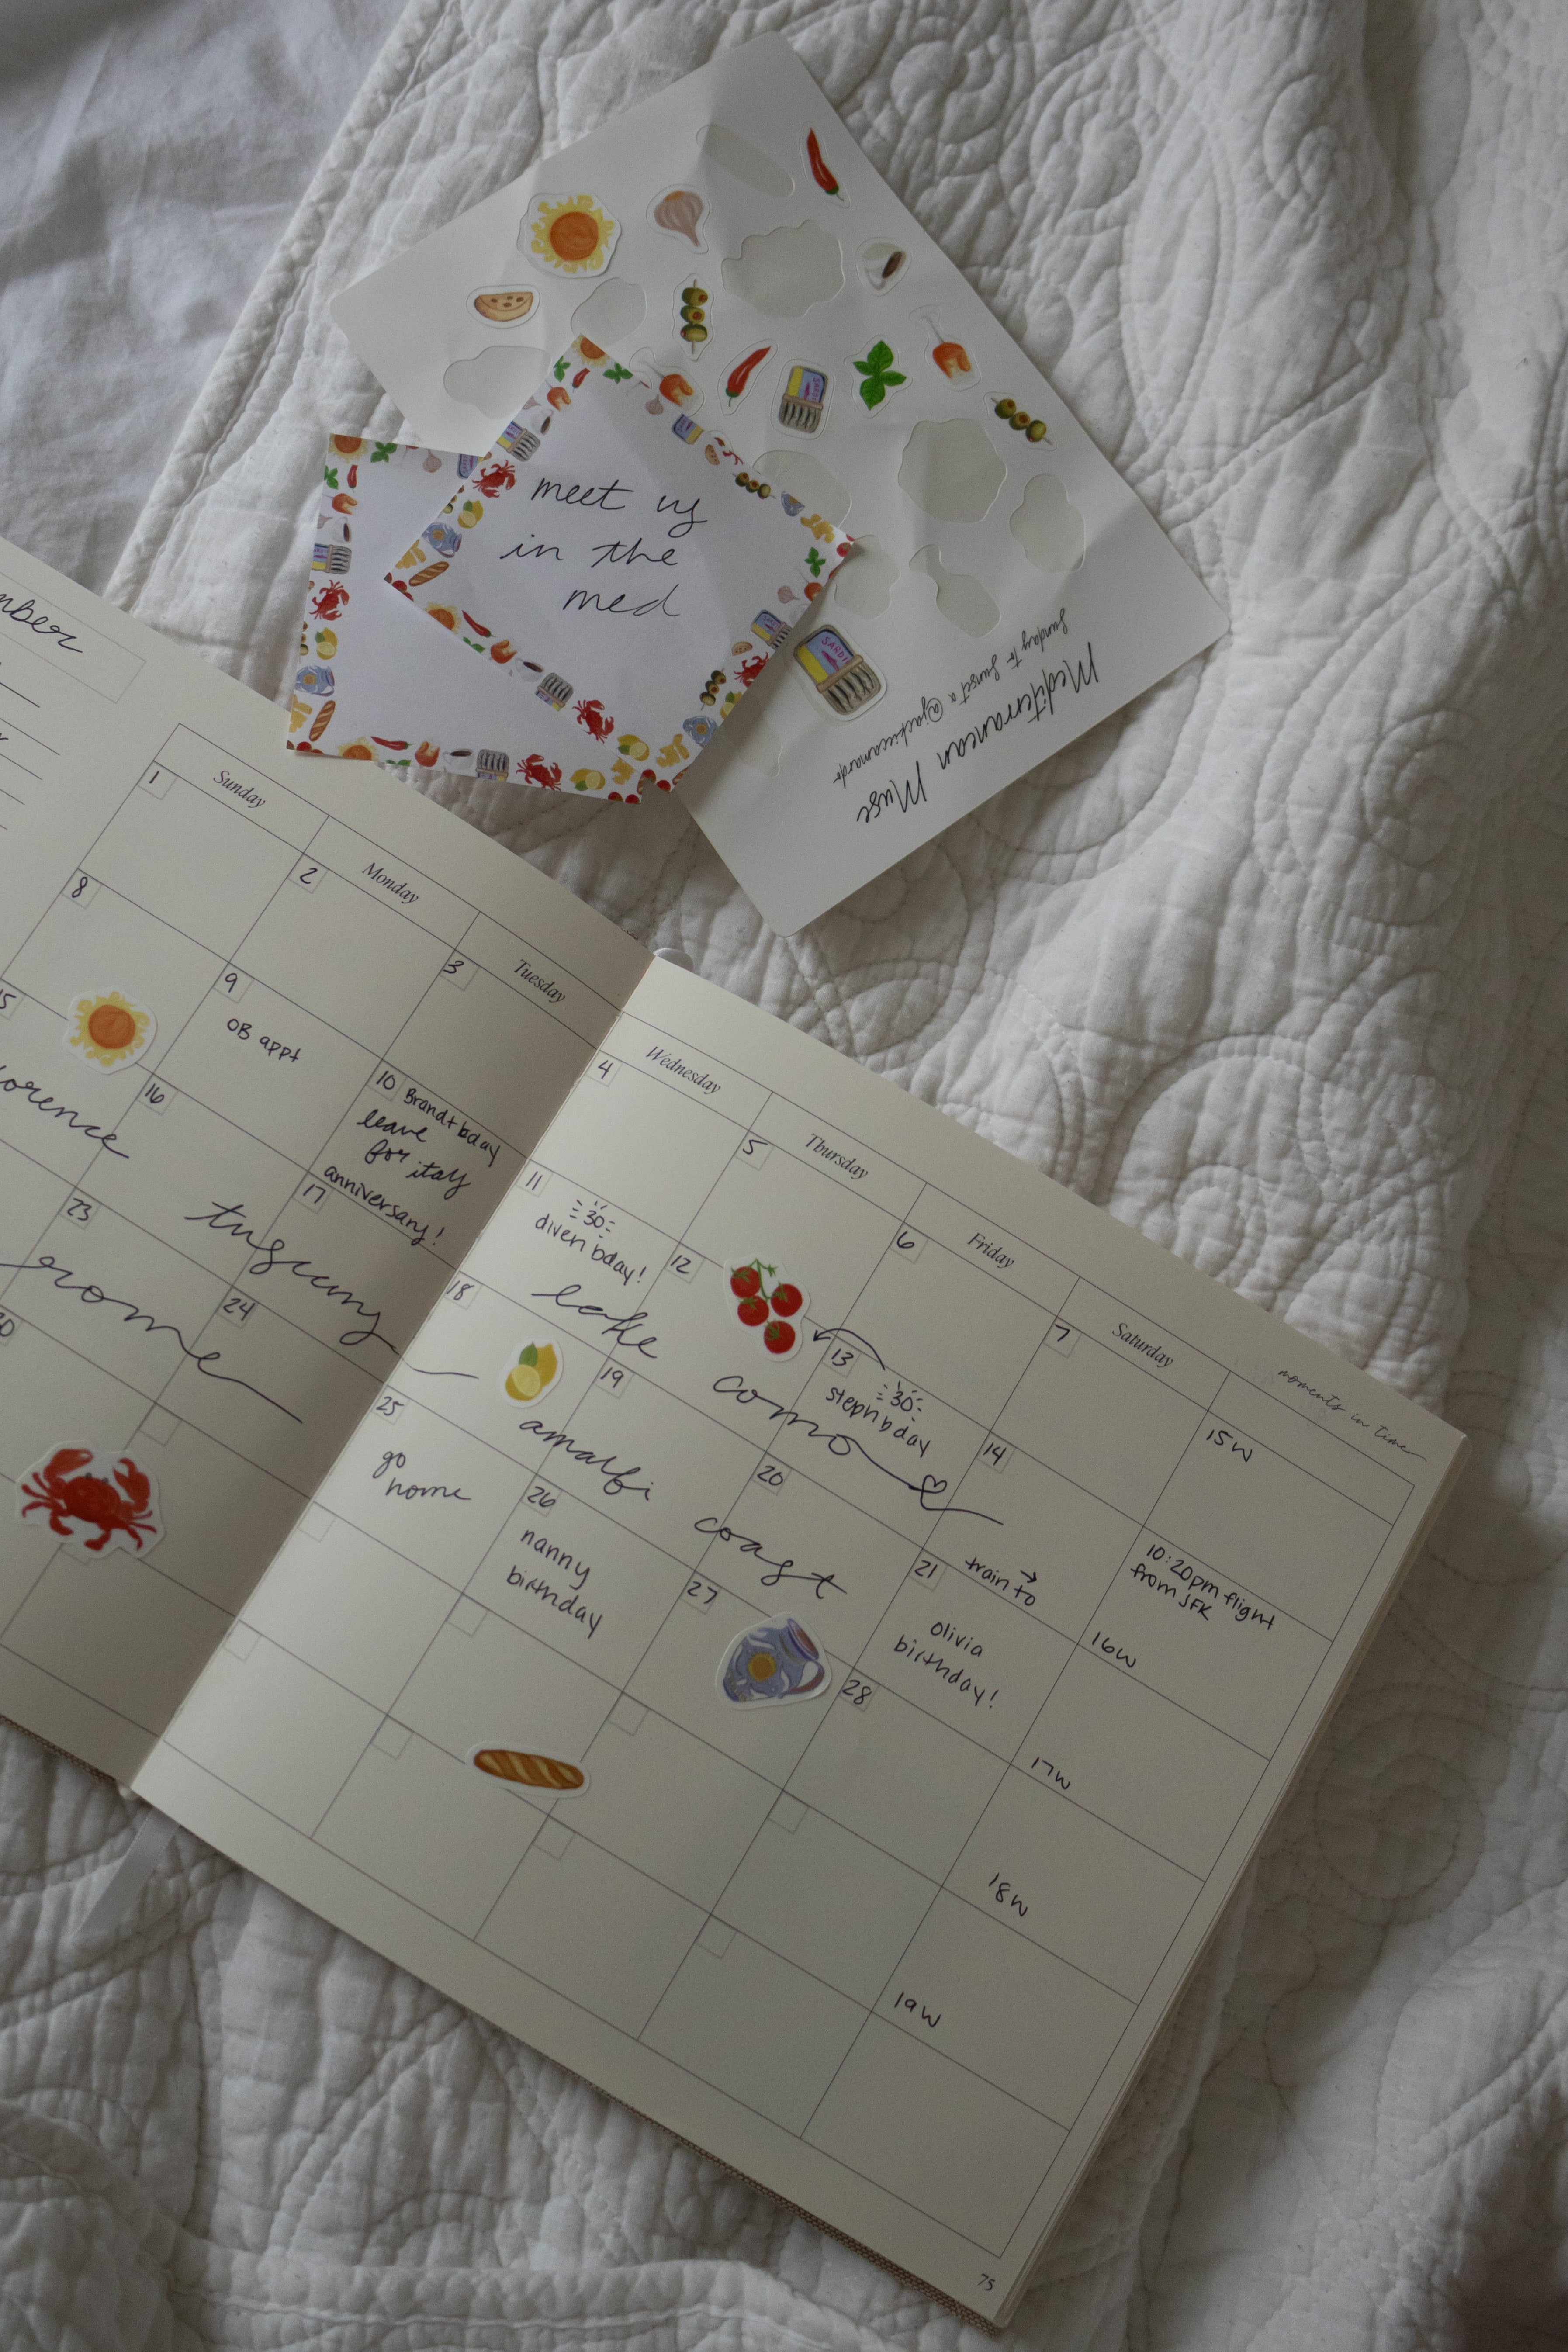 meet us
in the
med
SARDI
Mediterranean Muse
Sunday to Sunset x @jackiecamardo
mber
Sunday
Monday
Tuesday
Wednesday
Thursday
Friday
Saturday
moments in time
1
2
3
4
5
6
7
15W
8
9
OB appt
10 Brandt bday
leave
for italy
anniversary!
11
30
diven bday!
12
13
30
steph bday
14
10:20pm flight
from JFK
lake
como
train to →
16W
15
orence
16
17
tuscany
18
19
20
amalfi
coast
21
olivia
birthday!
17W
rome
23
24
25
go
home
26
nanny
birthday
27
28
18W
30
19W
75